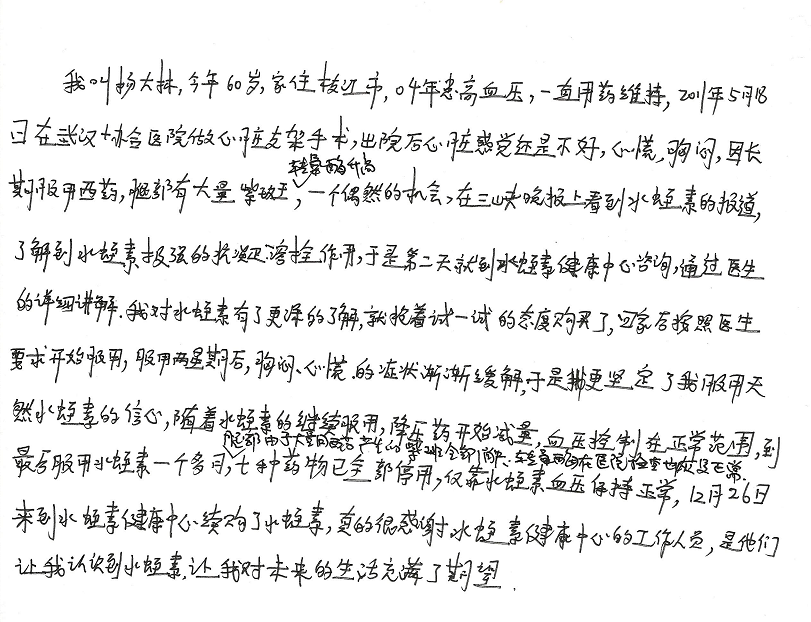 我叫杨大林,今年60岁,家住枝江市,04年患高血压,一直用药维持,2011年5月18
日在武汉协合医院做心脏支架手术,出院后心脏感觉还是不好,心慌,胸闷,因长
转氨酶升高
期服用西药,腿部有大量紫斑,一个偶然的机会,在三峡晚报上看到水蛭素的报道,
了解到水蛭素极强的抗凝溶栓作用,于是第二天就到水蛭素健康中心咨询,通过医生
的详细讲解.我对水蛭素有了更深的了解,就抱着试一试的态度购买了,回家后按照医生
要求开始服用,服用两星期后,胸闷、心慌.的症状渐渐缓解,于是更坚定了我服用天
然水蛭素的信心,随着水蛭素的继续服用,降压药开始减量,血压控制在正常范围,到
腿部由于大量西药产生的紫斑全部消,转氨酶在医院检查也正常.
最后服用水蛭素一个多月,七种药物已全部停用,仅靠水蛭素血压保持正常,12月26日
来到水蛭素健康中心续购了水蛭素,真的很感谢水蛭素健康中心的工作人员,是他们
让我认识到水蛭素,让我对未来的生活充满了期望.